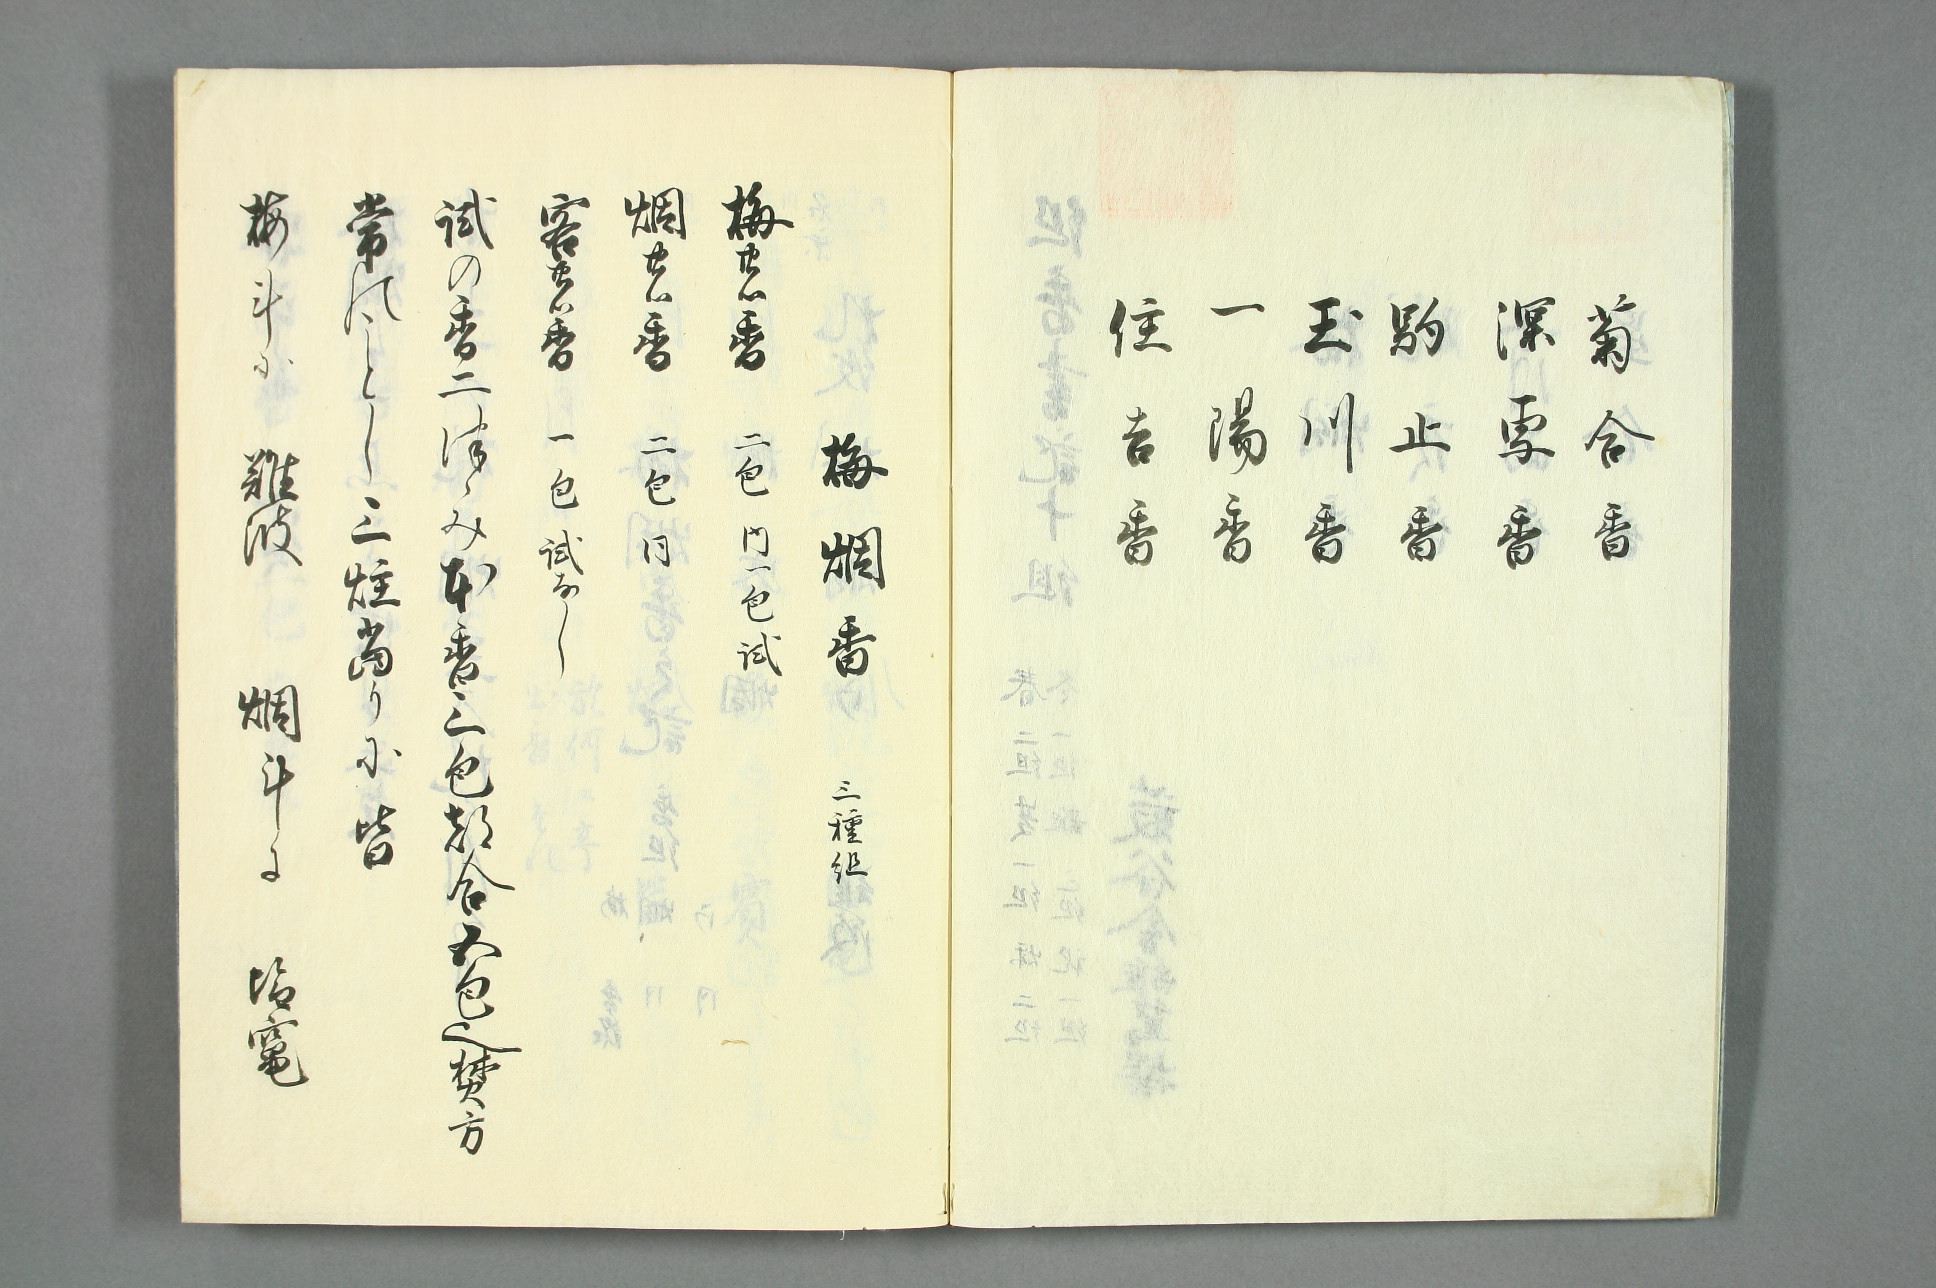 菊合香
深雪香
駒止香
玉川香
一陽香
住吉香
梅烟香 三種組
梅 香 二包 内一包試
烟 香 二包 同
客 香 一包 試なし
試の香二つゝみ本香三包都合五包也焚方
常のことし三炷当りに皆
梅斗に 難波 烟斗に 塩竃